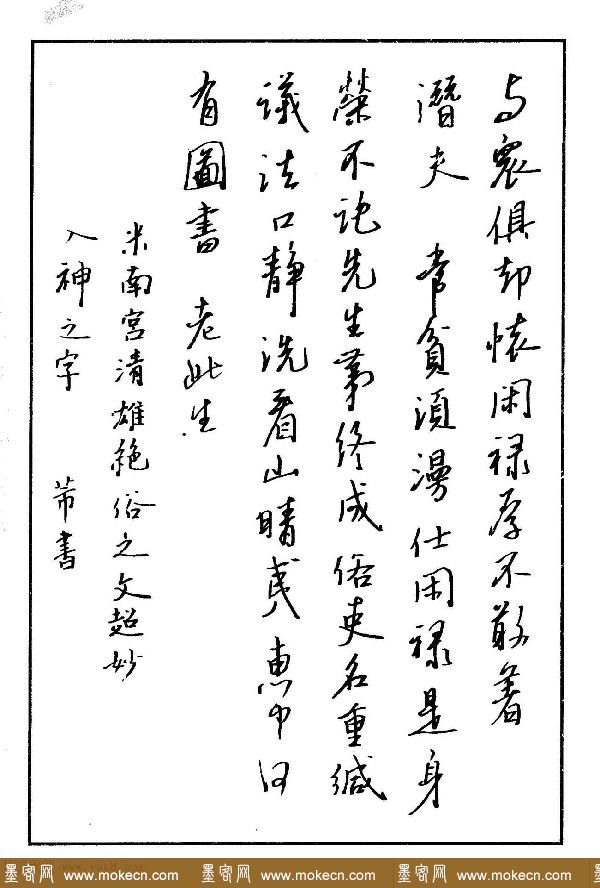 与众俱却怀闲禄厚不敢著
潜夫 常贫须漫仕闲禄是身
荣不托先生第终成俗吏名重缄
议法口静洗看山晴夷惠中何
有圖書老此生
米南宫清雄絶俗之文超妙
入神之字 芾書
墨客网 www.mokecn.com 墨客网 www.mokecn.com 墨客网 www.mokecn.com